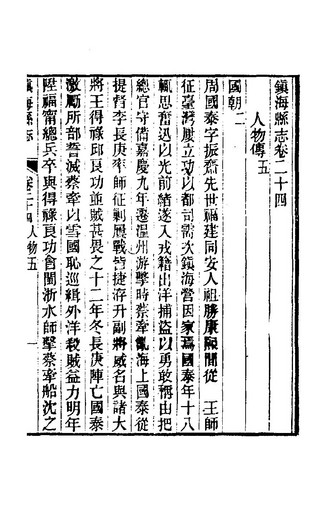 鎮海縣志卷二十四
人物傳五
國朝二
周國泰字振齋先世福建同安人祖勝康熙間從 王師
征臺灣屢立功以都司需次鎮海營因家焉國泰年十八
輒思奮迅以光前緒遂入戎籍出洋捕盜以勇敢稱由把
總官守備嘉慶九年遷溫州游擊時蔡牽亂海上國泰從
提督李長庚率師征剿屢戰皆捷洊升副將威名與諸大
將王得祿邱良功並賊甚畏之十二年冬長庚陣亡國泰
激勵所部誓滅蔡牽以雪國恥巡緝外洋殺賊益力明年
陞福甯總兵卒與得祿良功會閩浙水師擊蔡牽船沈之
鎮海縣志
卷二十四人物五
一